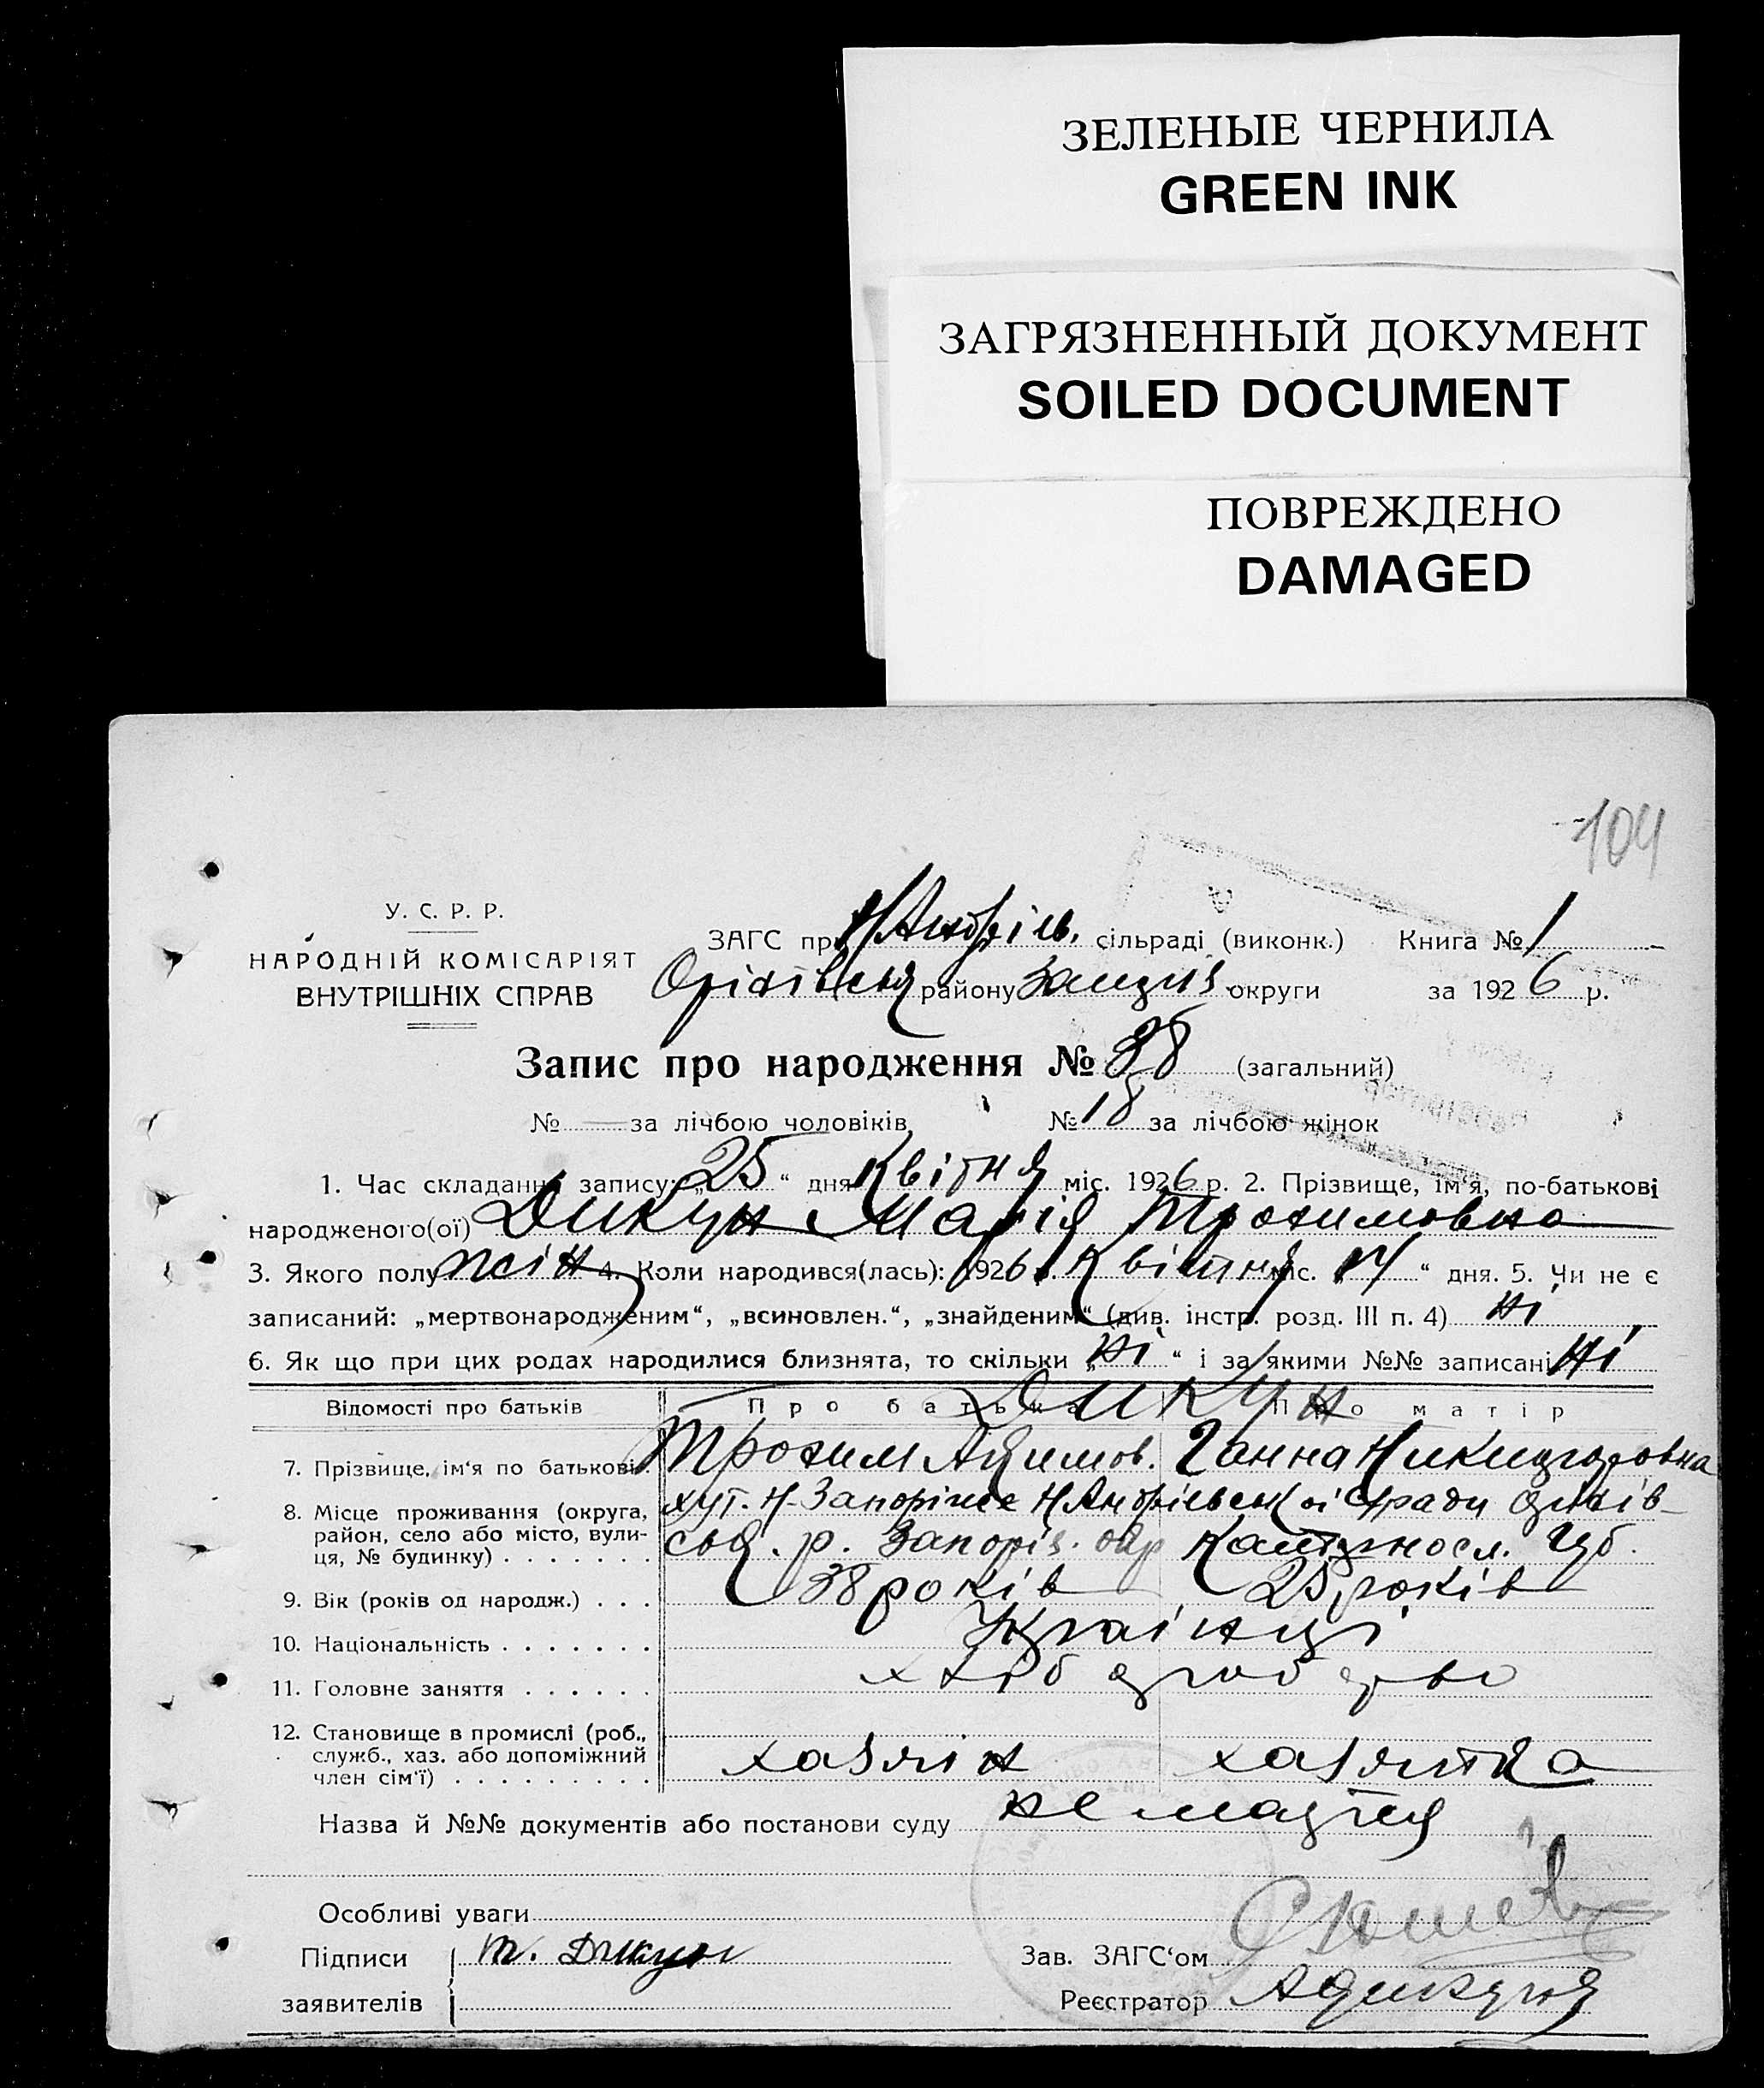 ЗЕЛЕНЫЕ ЧЕРНИЛА
GREEN INK
ЗАГРЯЗНЕННЫЙ ДОКУМЕНТ
SOILED DOCUMENT
ПОВРЕЖДЕНО
DAMAGED
104
У. С. Р. Р.
НАРОДНІЙ КОМІСАРІЯТ
ВНУТРІШНІХ СПРАВ
ЗАГС при Н/Андрїїв. сільраді (виконк.) Книга № 1
району округи за 1926 р.
Запис про народження № 38 (загальний)
№ — за лічбою чоловіків № 18 за лічбою жінок
1. Час складання запису: „25“ дня Квітня міс. 1926 р. 2. Прізвище, ім'я, по-батькові
народженого(ої) Дикун Марія Трохимовна
3. Якого полу жін 4. Коли народився(лась): 1926 р. Квітня міс. 14 “ дня. 5. Чи не є
записаний: „мертвонародженим“, „всиновлен.“, „знайденим“ (див. інстр. розд. III п. 4) Ні
6. Як що при цих родах народилися близнята, то скільки „Ні“ і за якими №№ записані Ні
Відомості про батьків Про батька Про матір
Дикун
7. Прізвище, ім'я по батькові. Трохим Ганна
8. Місце проживання (округа, район, село або місто, вулиця, № будинку) хут. Н-Запоріжже
р. Запоріз. окр Губ.
9. Вік (років од народж.) 38 років 25 років
10. Національність Українці
11. Головне заняття
12. Становище в промислі (роб., служб., хаз. або допоміжний член сім'ї) хазяїн хазяйка
Назва й №№ документів або постанови суду не мається
Особливі уваги
Підписи Т. Дикун Зав. ЗАГС'ом
заявителів Реєстратор